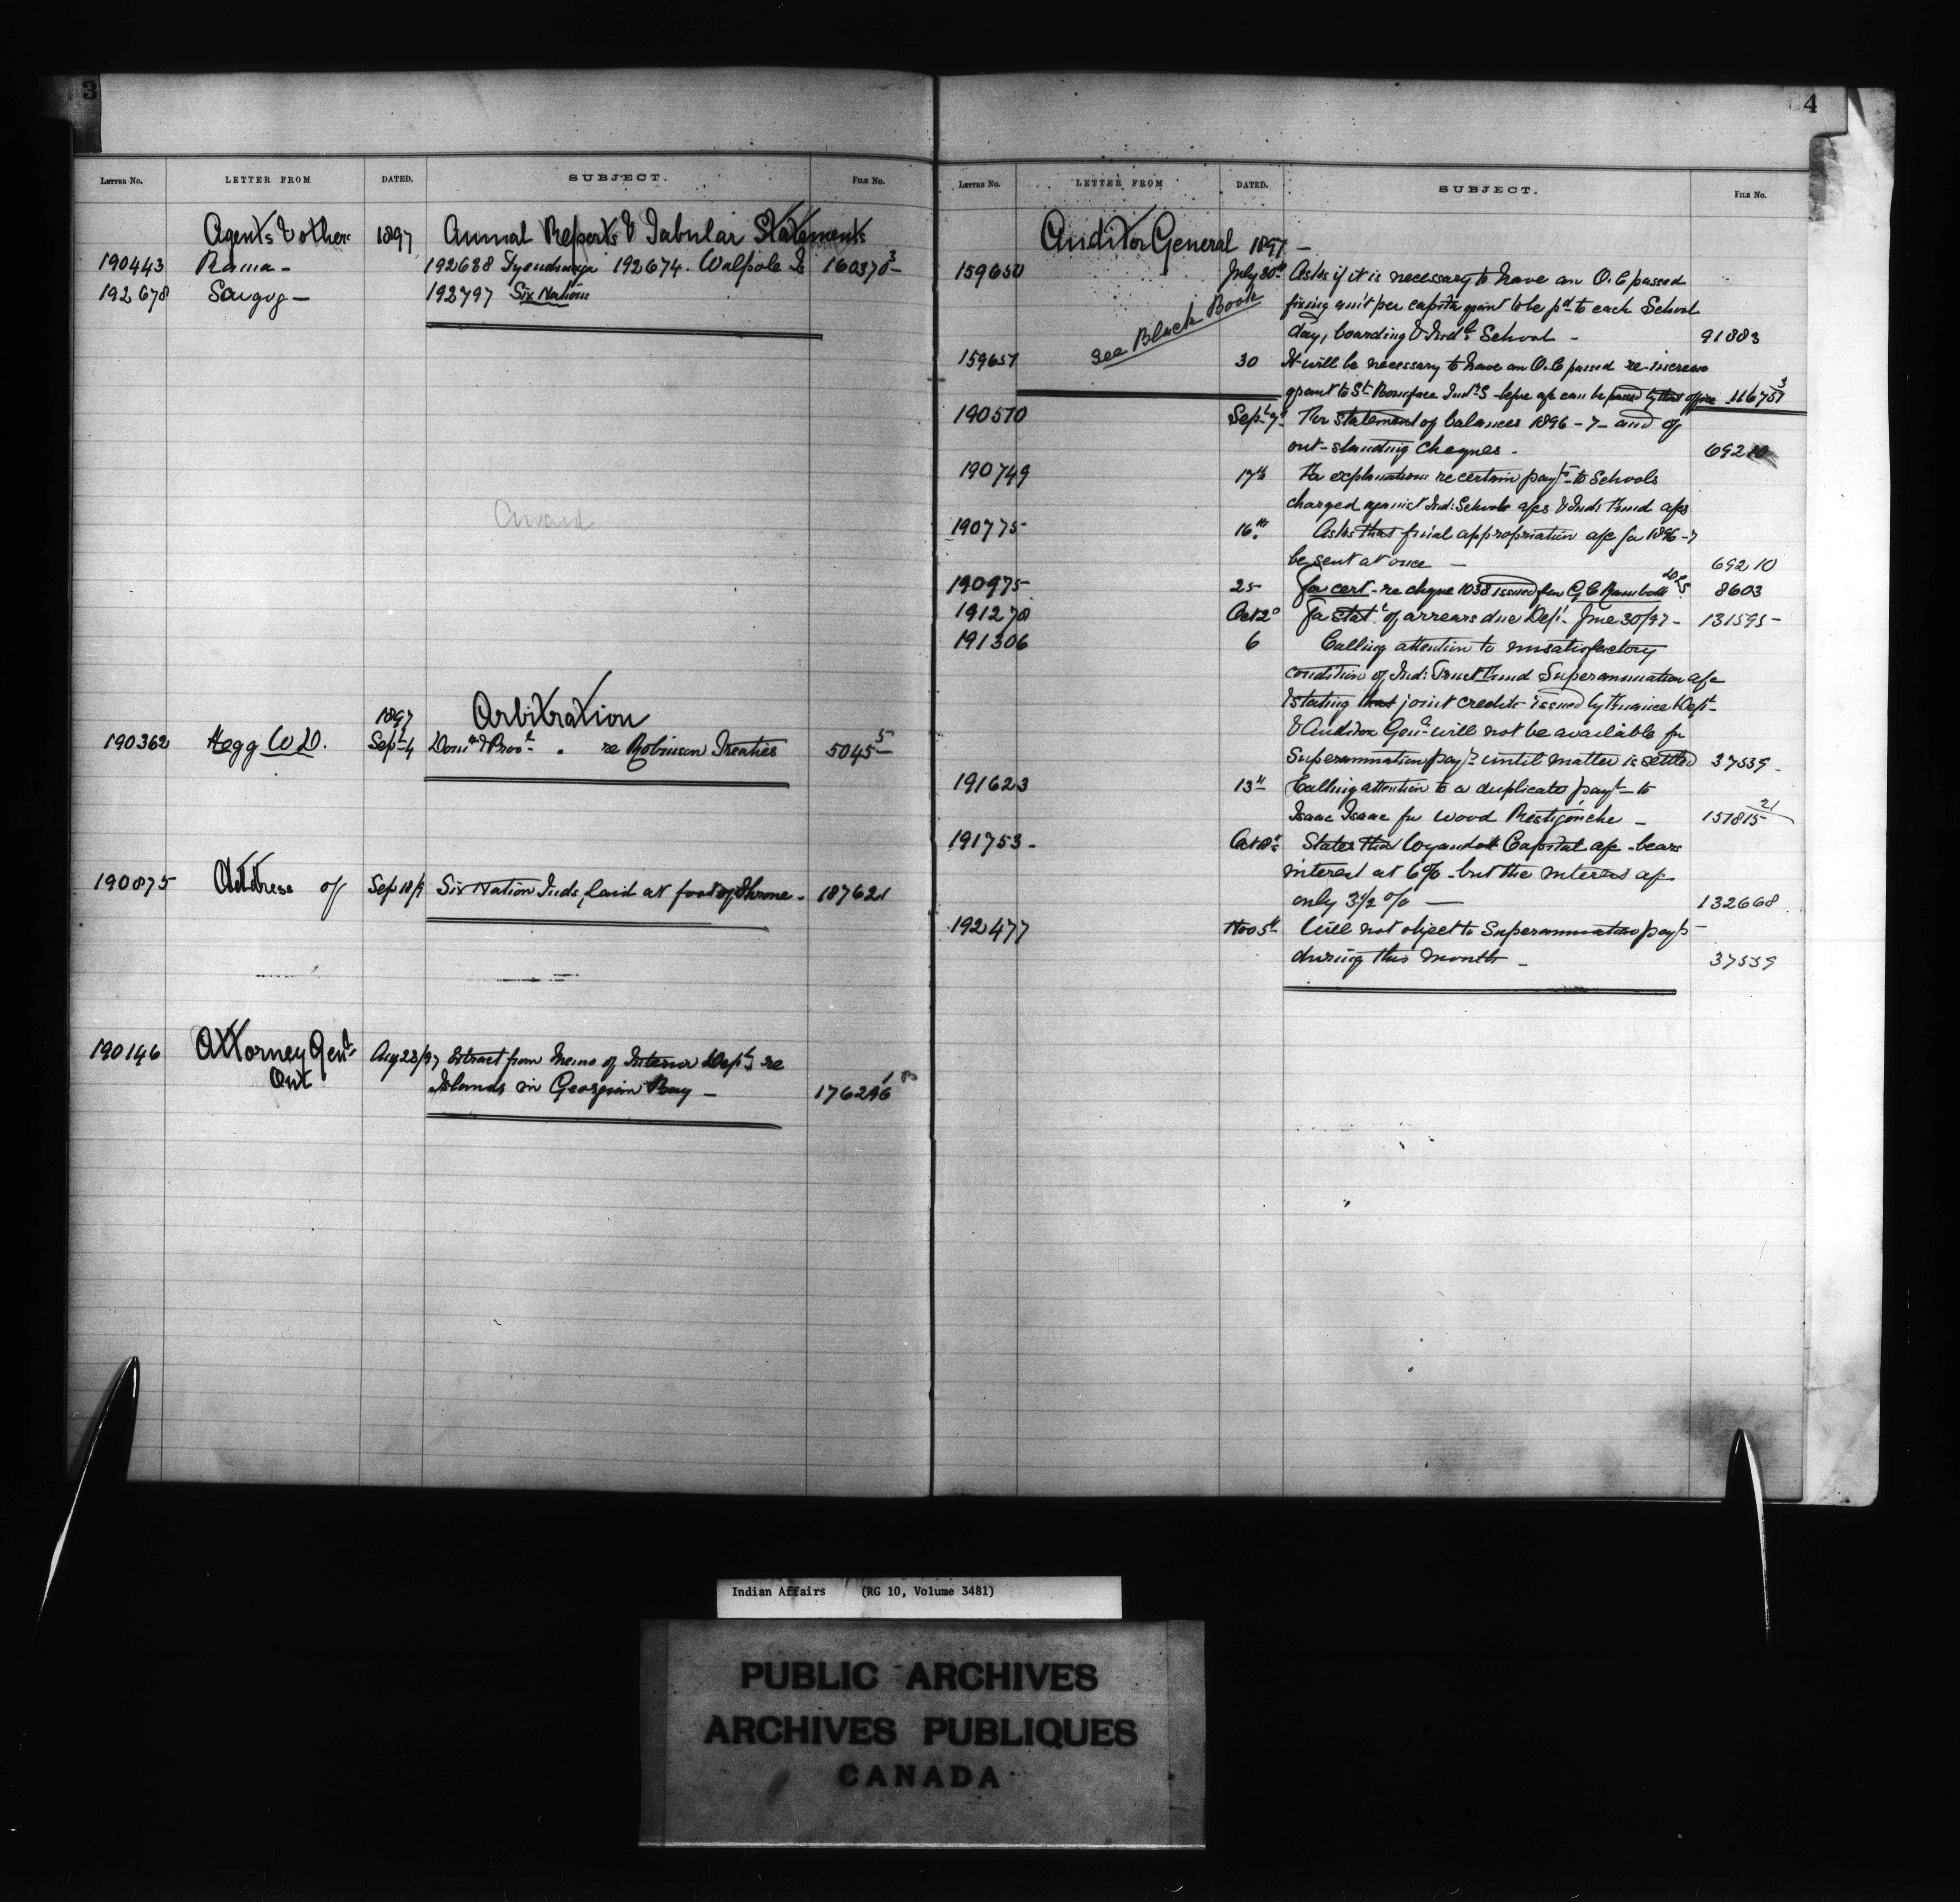 3
LETTER NO. LETTER FROM DATED. SUBJECT. FILE NO.
Agents & others 1897 Annual Reports & Tabular Statements
190443 Rama - 192688 Tyendinaga 192674. Walpole Is 160370 3 -
192678 Scugog - 192797 Six Nations
Award
1897 Arbitration
190362 Hogg W D. Sept 4 Domn & Prov l " re Robinson Treaties 5045 5 -
190875 Address of Sep 18/97 Six Nation Inds, laid at foot of Throne - 187621
190146 Attorney Genl Aug 28/97 Extract from Memo of Interior Dept re
Ont Islands in Georgian Bay - 176296 1
4
LETTER NO. LETTER FROM DATED. SUBJECT. FILE NO.
Auditor General 1897 -
159650 July 30th Asks if it is necessary to have an O.C passed
fixing per capita grant to be pd to each School
see Black Book
day, boarding & Indl School - 91883
159651 30 It will be necessary to have an O.C passed re increase
grant to St Boniface Indl S before a/c can be passed by that office 116751 3
190510 Sept 7 For statement of balances 1896-7 - and of
out-standing cheques - 69210
190749 17th For explanation re certain payts to Schools
charged against Ind: Schools a/cs & Ind: Fund a/cs
190775 16th Asks that final appropriation a/c for 1896-7
be sent at once - 69210
190975 25 For cert - re cheque 1038 issued 8603
191270 Oct 2d For statt of arrears due Dept June 30/97 - 131595 -
191306 6 Calling attention to unsatisfactory
condition of Ind: Trust Fund Superannuation a/c
& stating that joint credits issued by Finance Dept
& Auditor Genl will not be available for
Superannuation payts until matter is settled 37539 -
191623 13th Calling attention to a duplicate payt - to
Isaac Isaac for wood Restigouche - 151815 21
191753 - Oct States that Wyandott Capital a/c - bears
interest at 6% - but the interest a/c
only 3 1/2 % - 132668
192477 Nov 5th Will not object to Superannuation payts
during this month - 37539
Indian Affairs (RG 10, Volume 3481)
PUBLIC ARCHIVES
ARCHIVES PUBLIQUES
CANADA